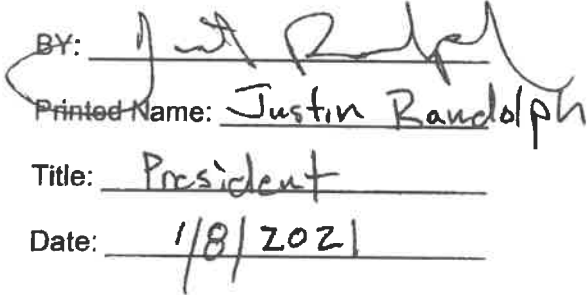 BY: Justin Randolph
Printed Name: Justin Randolph
Title: President
Date: 1/8/2021